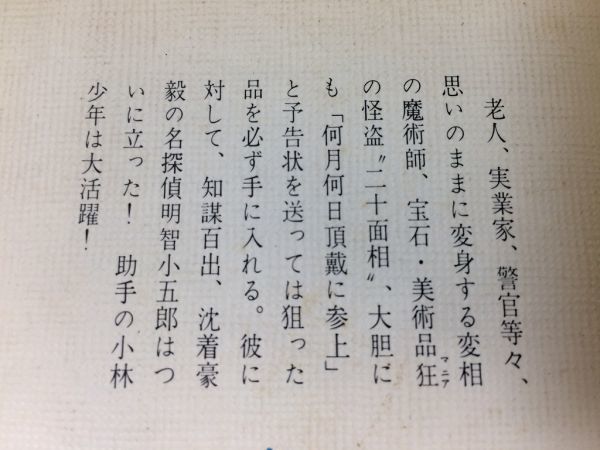 老人、実業家、警官等々、
思いのままに変身する変相
の魔術師、宝石・美術品狂マニア
の怪盗〝二十面相〟、大胆に
も「何月何日頂戴に参上」
と予告状を送っては狙った
品を必ず手に入れる。彼に
対して、知謀百出、沈着豪
毅の名探偵明智小五郎はつ
いに立った！　助手の小林
少年は大活躍！